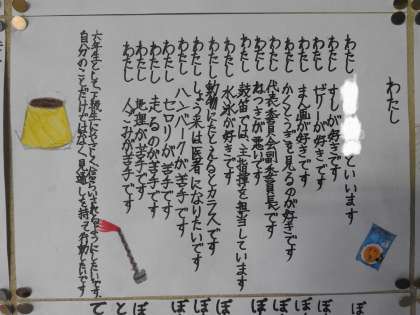 わたし
わたし
といいます
わたし すしが好きです
わたし ゼリーが好きです
わたし まん画が好きです
わたし かくとうぎを見るのが好きです
わたし 代表委員会副委員長です
わたし ねつきが悪いです
わたし 鼓笛では、主指揮を担当しています
わたし 水泳が好きです
わたし 動物にたとえるとカラスです
わたし しょう来は医者になりたいです
わたし ハンバーグが苦手です
わたし セロリが苦手です
わたし 走るのが苦手です
わたし 地理が苦手です
わたし 人ごみが苦手です
六年生として下級生にやさしく
自分のことだけではなく、見通しを持って行動したいです